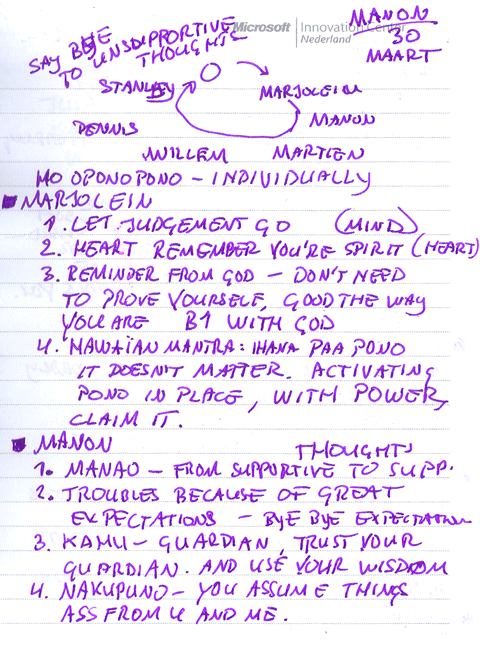 Microsoft Innovation Center
Nederland
MANON
30
MAART
SAY BYE
TO UNSUPPORTIVE
THOUGHTS
STANLEY
MARJOLEIN
DENNIS
MANON
WILLEM MARTIEN
HO OPONOPONO - INDIVIDUALLY
MARJOLEIN
1. LET JUDGEMENT GO (MIND)
2. HEART REMEMBER YOU'RE SPIRIT (HEART)
3. REMINDER FROM GOD - DON'T NEED
TO PROVE YOURSELF, GOOD THE WAY
YOU ARE B1 WITH GOD
4. HAWAÏAN MANTRA: IHANA PAA PONO
IT DOESN'T MATTER. ACTIVATING
PONO IN PLACE, WITH POWER,
CLAIM IT.
MANON
THOUGHTS
1. MANAO - FROM SUPPORTIVE TO SUPP.
2. TROUBLES BECAUSE OF GREAT
EXPECTATIONS - BYE BYE EXPECTATION
3. KAHU - GUARDIAN, TRUST YOUR
GUARDIAN. AND USE YOUR WISDOM
4. NAKUPUNO - YOU ASSUME THINGS
ASS FROM U AND ME.